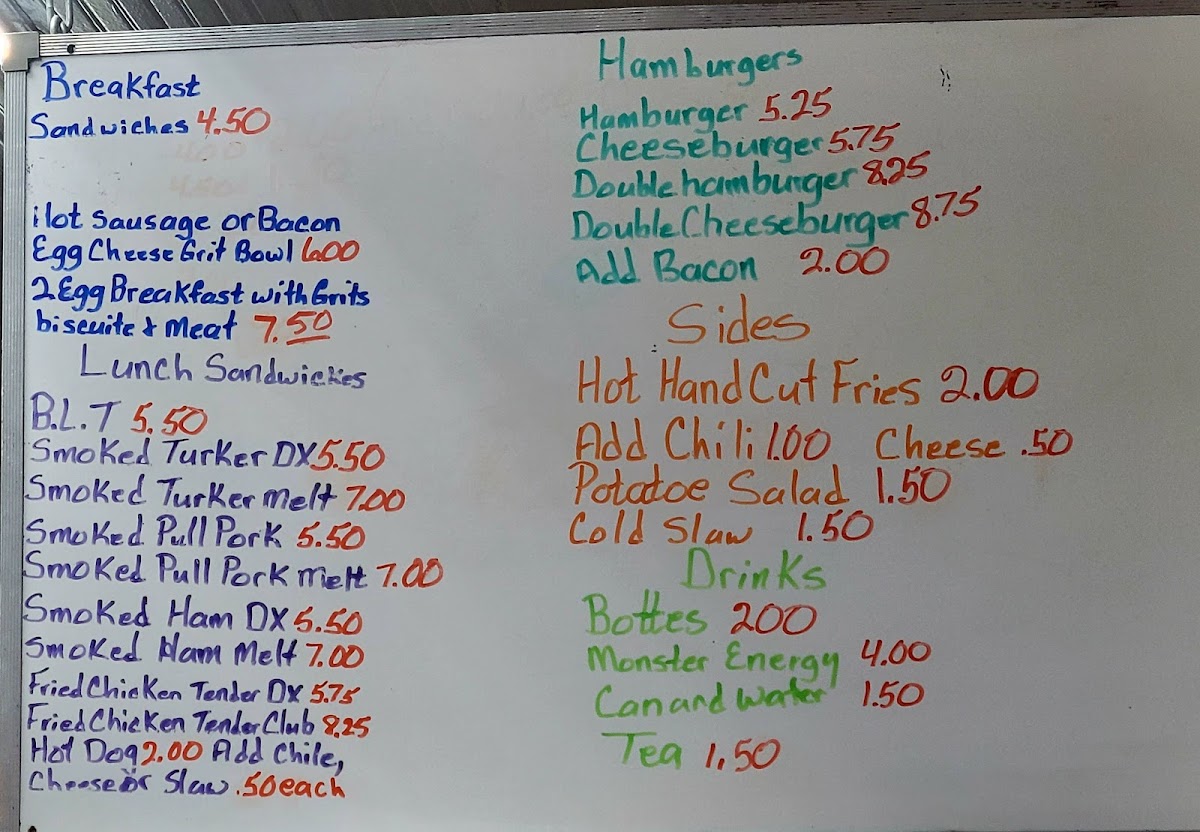 Breakfast
Sandwiches 4.50
Hot Sausage or Bacon
Egg Cheese Grit Bowl 6.00
2 Egg Breakfast with Grits
biscuite & Meat 7.50
Lunch Sandwickes
B.L.T 5.50
Smoked Turker DX 5.50
Smoked Turker Melt 7.00
Smoked Pull Pork 5.50
Smoked Pull Pork Melt 7.00
Smoked Ham DX 5.50
Smoked Ham Melt 7.00
Fried Chicken Tender DX 5.75
Fried Chicken Tender Club 8.25
Hot Dog 2.00 Add Chile,
Cheese or Slaw .50 each
Hamburgers
Hamburger 5.25
Cheeseburger 5.75
Double hamburger 8.25
Double Cheeseburger 8.75
Add Bacon 2.00
Sides
Hot Hand Cut Fries 2.00
Add Chili 1.00 Cheese .50
Potatoe Salad 1.50
Cold Slaw 1.50
Drinks
Bottes 200
Monster Energy 4.00
Can and Water 1.50
Tea 1.50